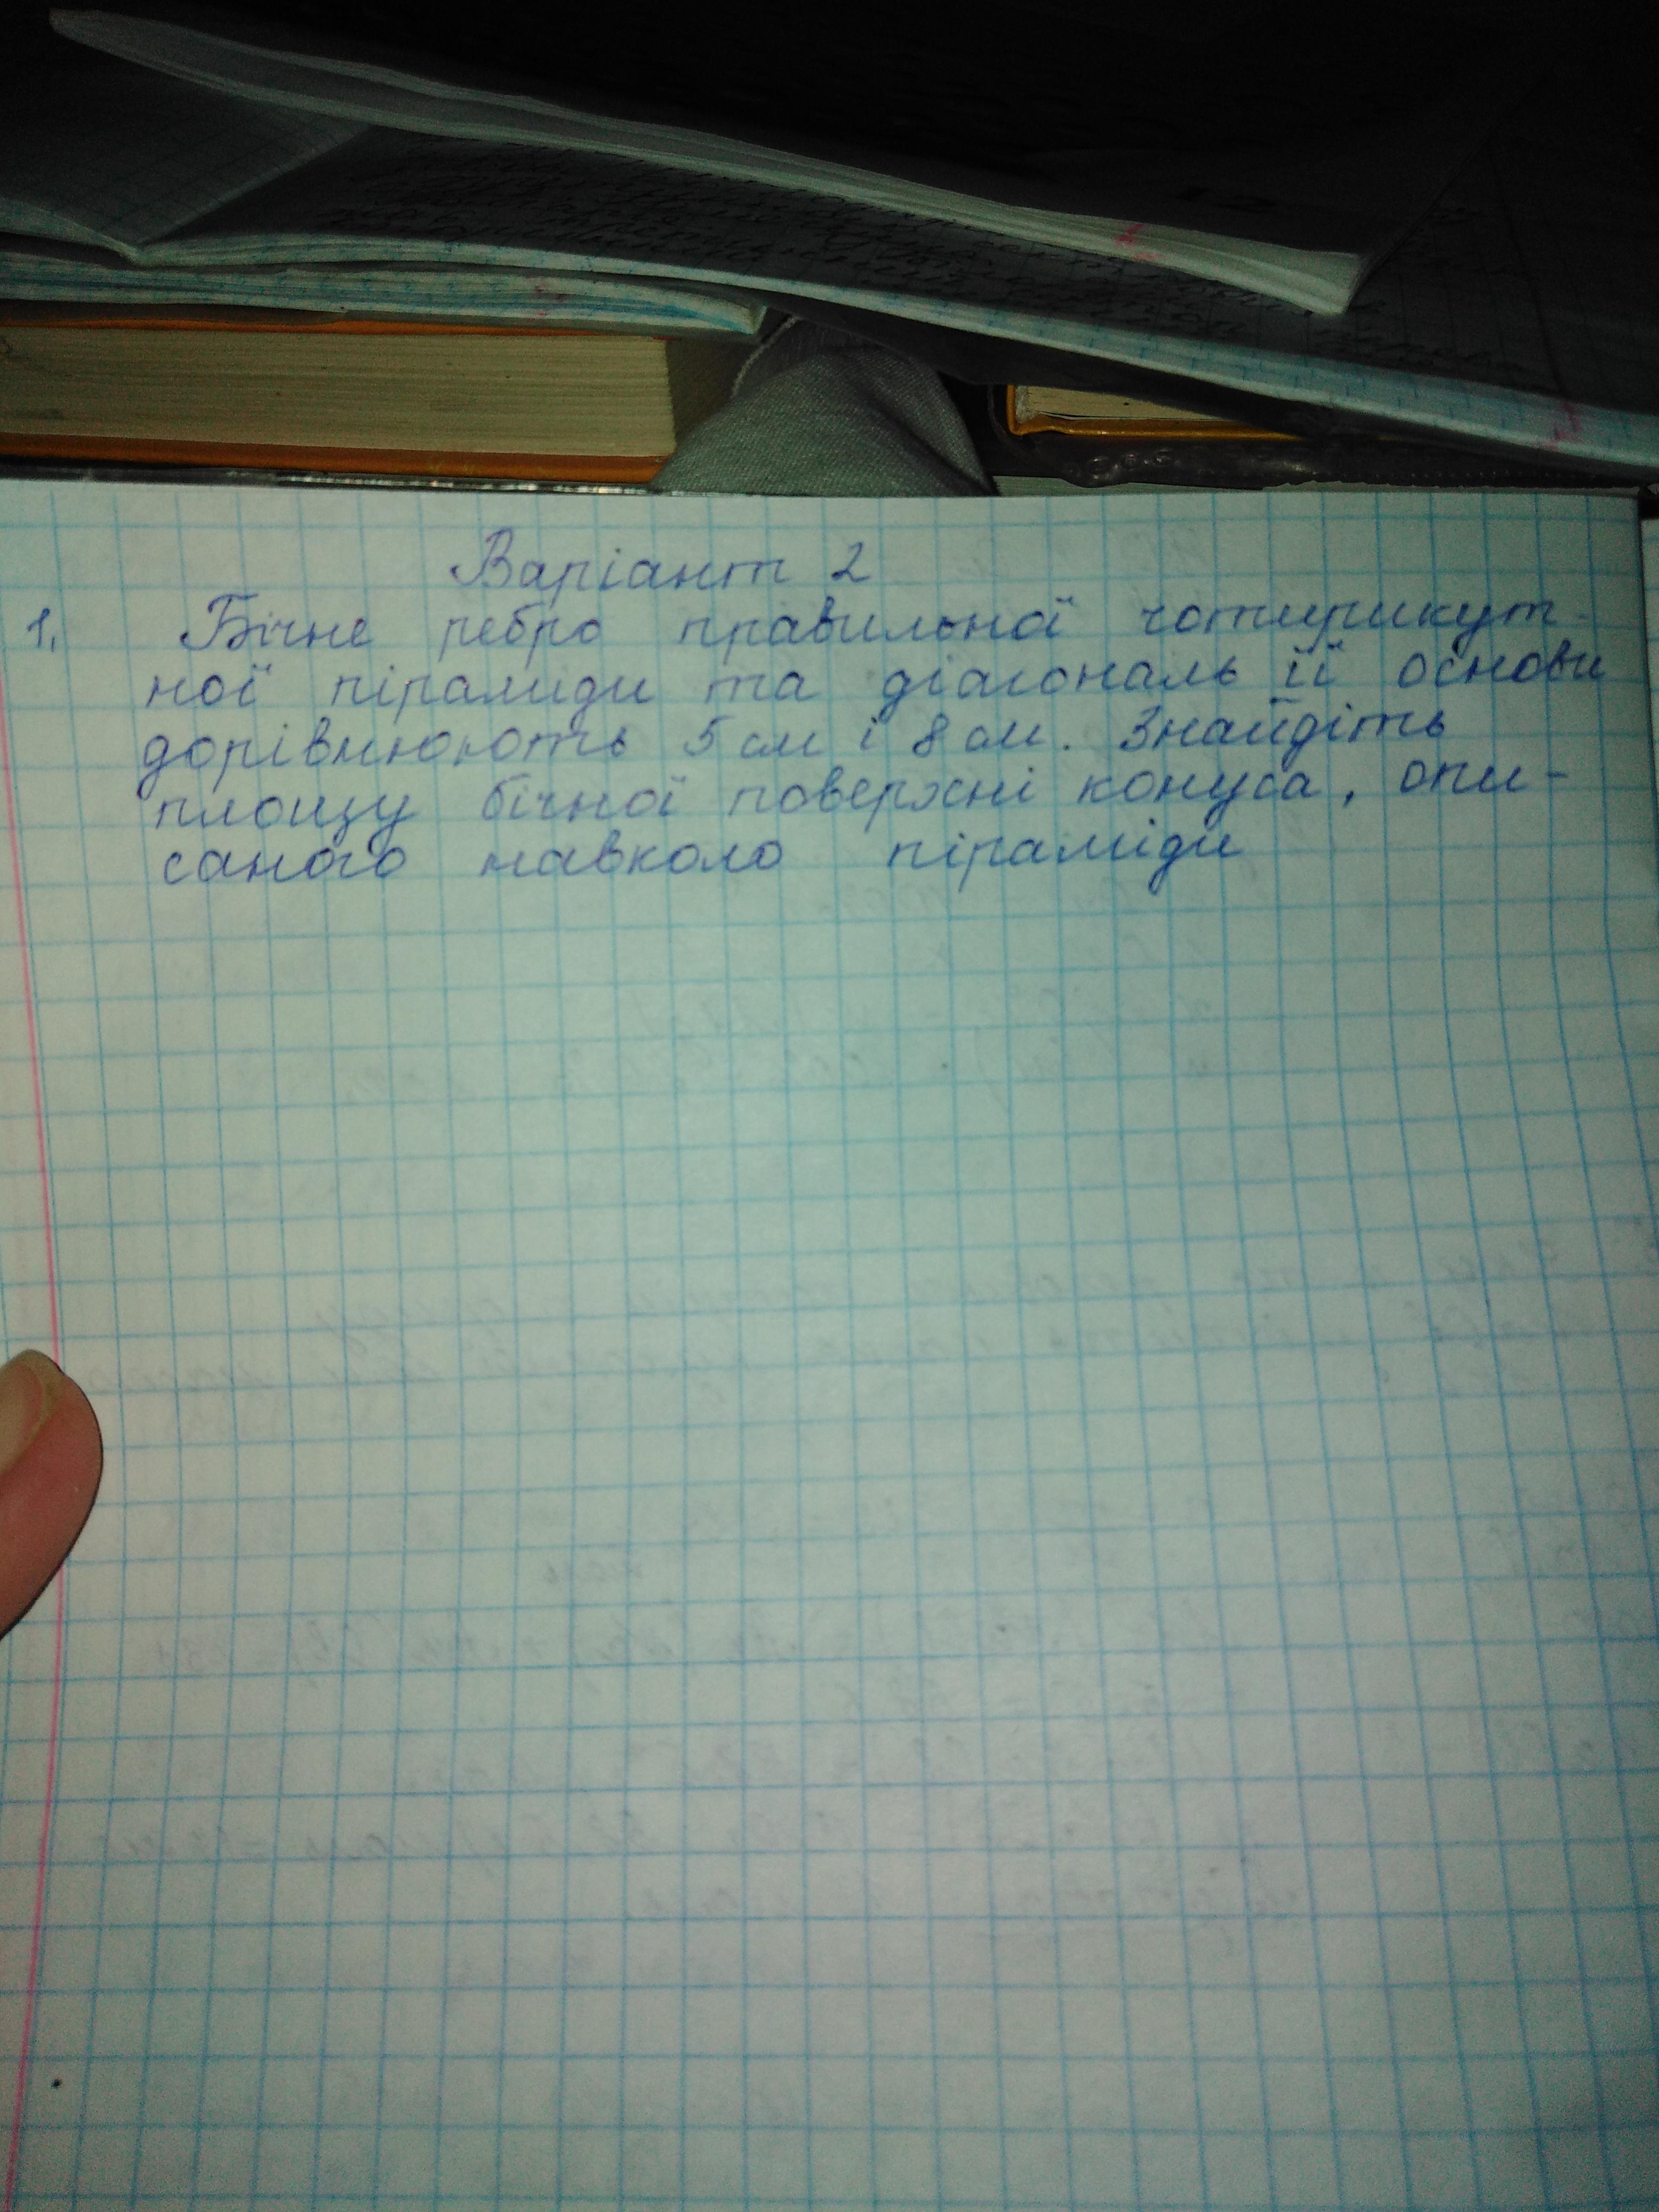 Варіант 2
1. Бічне ребро правильної чотирикут-
ної піраміди та діагональ її основи
дорівнюють 5 см і 8 см. Знайдіть
площу бічної поверхні конуса, опи-
саного навколо піраміди